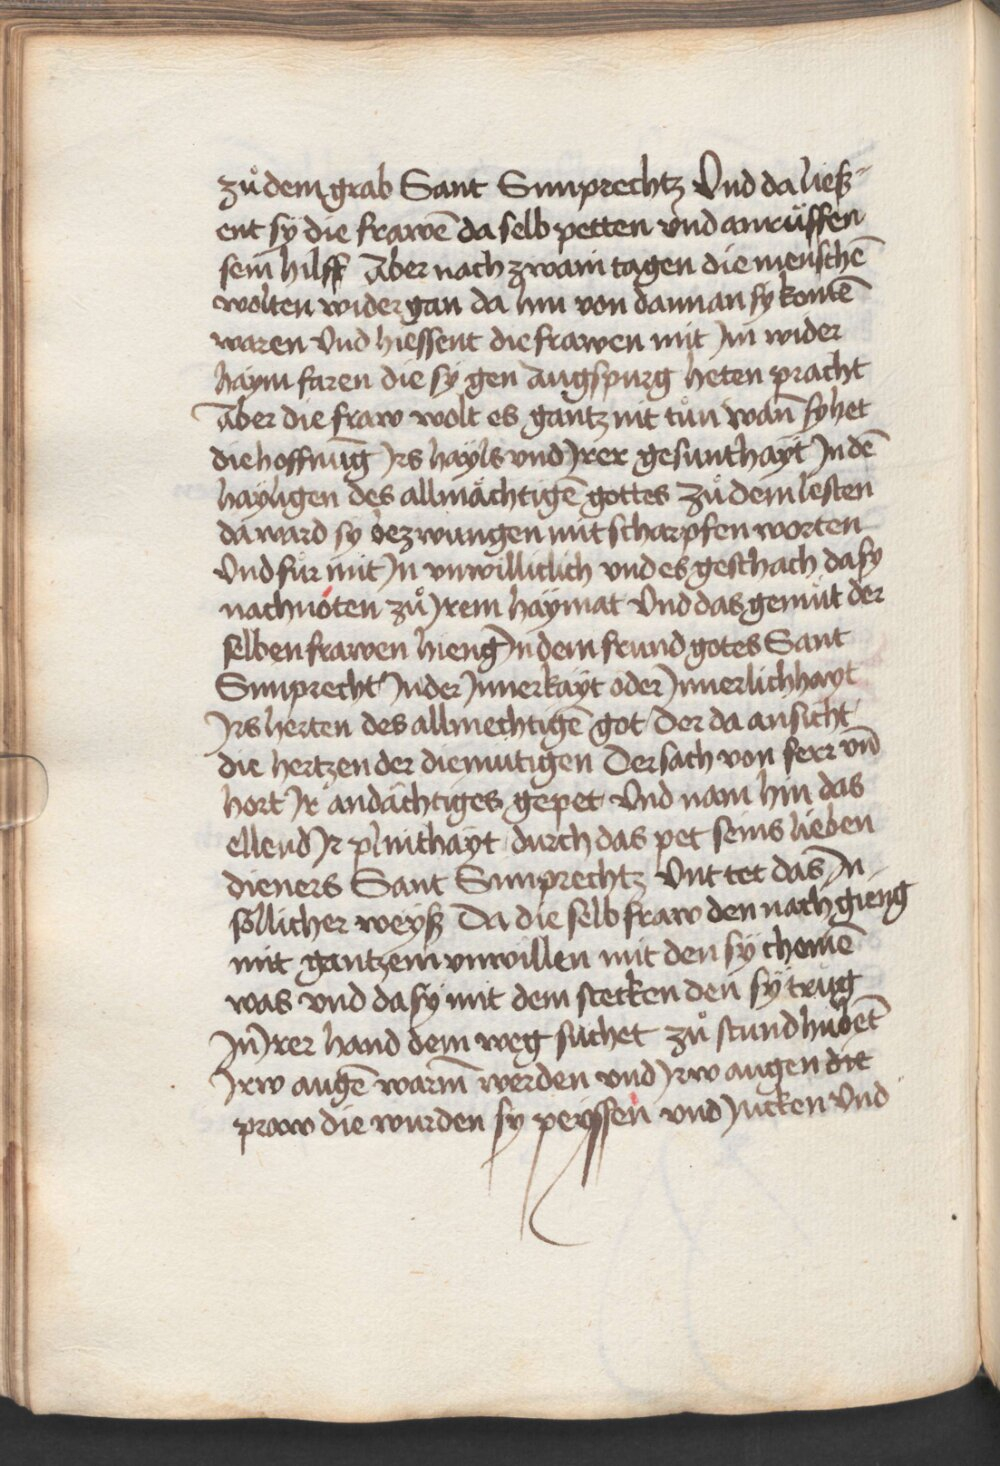 zů dem grab Sant Simprechtz Vnd da ließ-
ent sÿ die frawē da selb petten vnd anrüffen
sein hilff Aber nach zwain tagen die menschē
wolten wider gan da hin von dannan sy komē
waren Vnd hiessent die frawen mit Jn wider
haÿm faren die sÿ gen Augspurg heten pracht
Aber die fraw wolt es gantz nit tůn wan̄ sy het
die hoffnūg Jrs haÿls vnd Jrer gesunthaÿt Jn dē
haÿligen des allmächtigē gottes Zů dem lesten
da ward sy bezwungen mit scharpfen worten
Vnd fůr mit Jn vnwilliclich vnd es geschach da sy
nachnoten zů Jrem haÿmat Vnd das gemüt der
selben frawen hieng Jn dem frund gotes Sant
Simprecht Jn der Jnnerkaÿt oder Jnnerlichhayt
Jrs herten des allmechtigē got Der da ansicht
die hertzen der diemütigen Der sach von ferr vn̄
hort Jr andächtiges gepet Vnd nam hin das
ellend Jr plinthaÿt durch das pet seins lieben
dieners Sant Simprechtz Vnt tet das Jn
söllicher weÿß Da die selb fraw den nach gieng
mit gantzem vnwillen mit den sÿ chomē
was vnd da sÿ mit dem stecken den sÿ trůg
Jn Jrer hand dem weg süchet zů stund hůbēt
Jrw augē warm̄ werden vnd Jrw augen die
praw die wurden sy peÿssen vnd Jucken Vnd